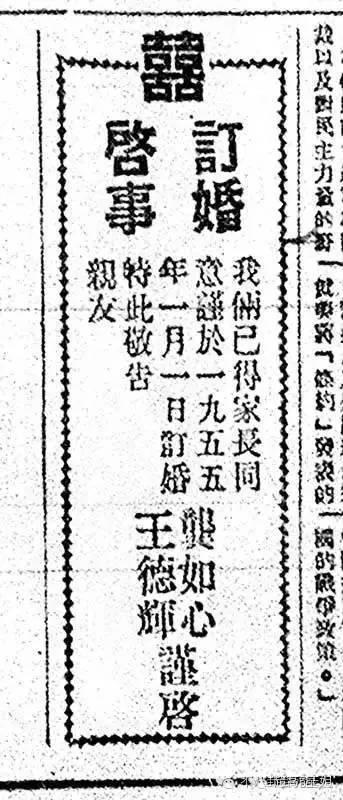 以及對民主力量的
「條約」發表的「
國的戰爭政策。」
囍
訂婚
啓事
我倆已得家長同
意謹於一九五五
年一月一日訂婚
特此敬告
親友
龔如心
王德輝
謹啓